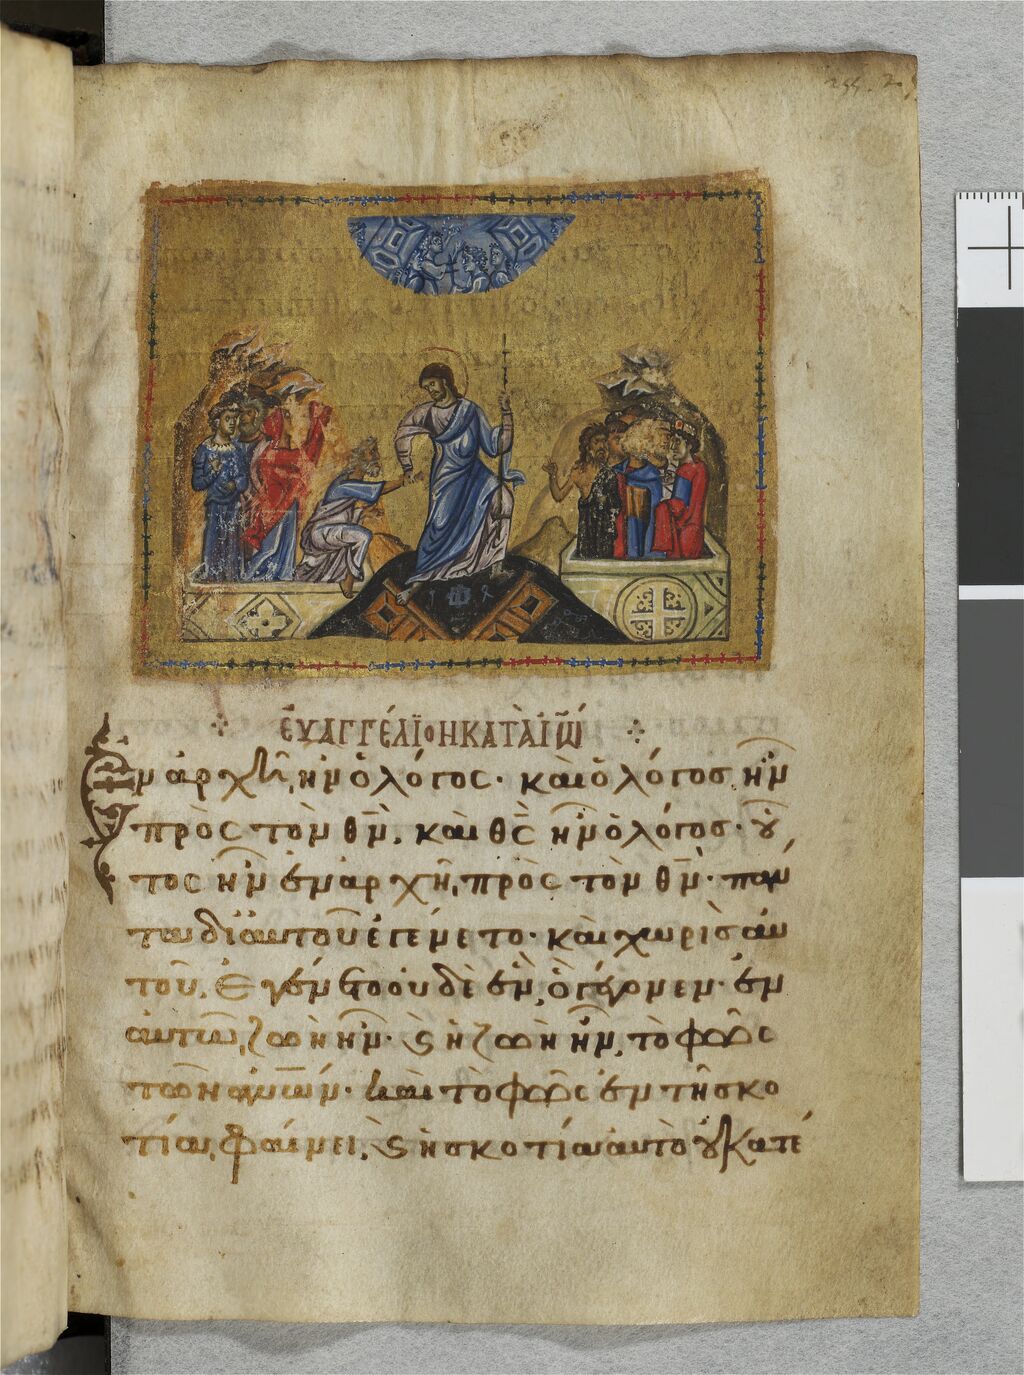 244.
ΕΥΑΓΓΕΛΙΟΝ ΚΑΤᾺ ἸΩ̅
Ἐν ἀρχῆ ἦν ὁ λόγος· καὶ ὁ λόγοσ ἦν
πρὸς τὸν θ̅ν̅, καὶ θ̅ς̅ ἦν ὁ λόγοσ· οὗ
τος ἦν ἐν ἀρχῆ, πρὸς τὸν θ̅ν̅· πάν
τα δϊ αὐτοῦ ἐγένετο· καὶ χωρὶσ αὐ
τοῦ, ἐγένετο οὐδὲ ἓν, ὃ γέγονεν· ἐν
αὐτῶ, ζωὴ ἦν· ϗ ἡ ζωὴ ἦν, τὸ φῶς
τῶν α̅ν̅ω̅ν· καὶ τὸ φῶς ἐν τῆ σκο
τία, φαίνει, ϗ ἡ σκοτία αὐτὸ οὐ κατέ